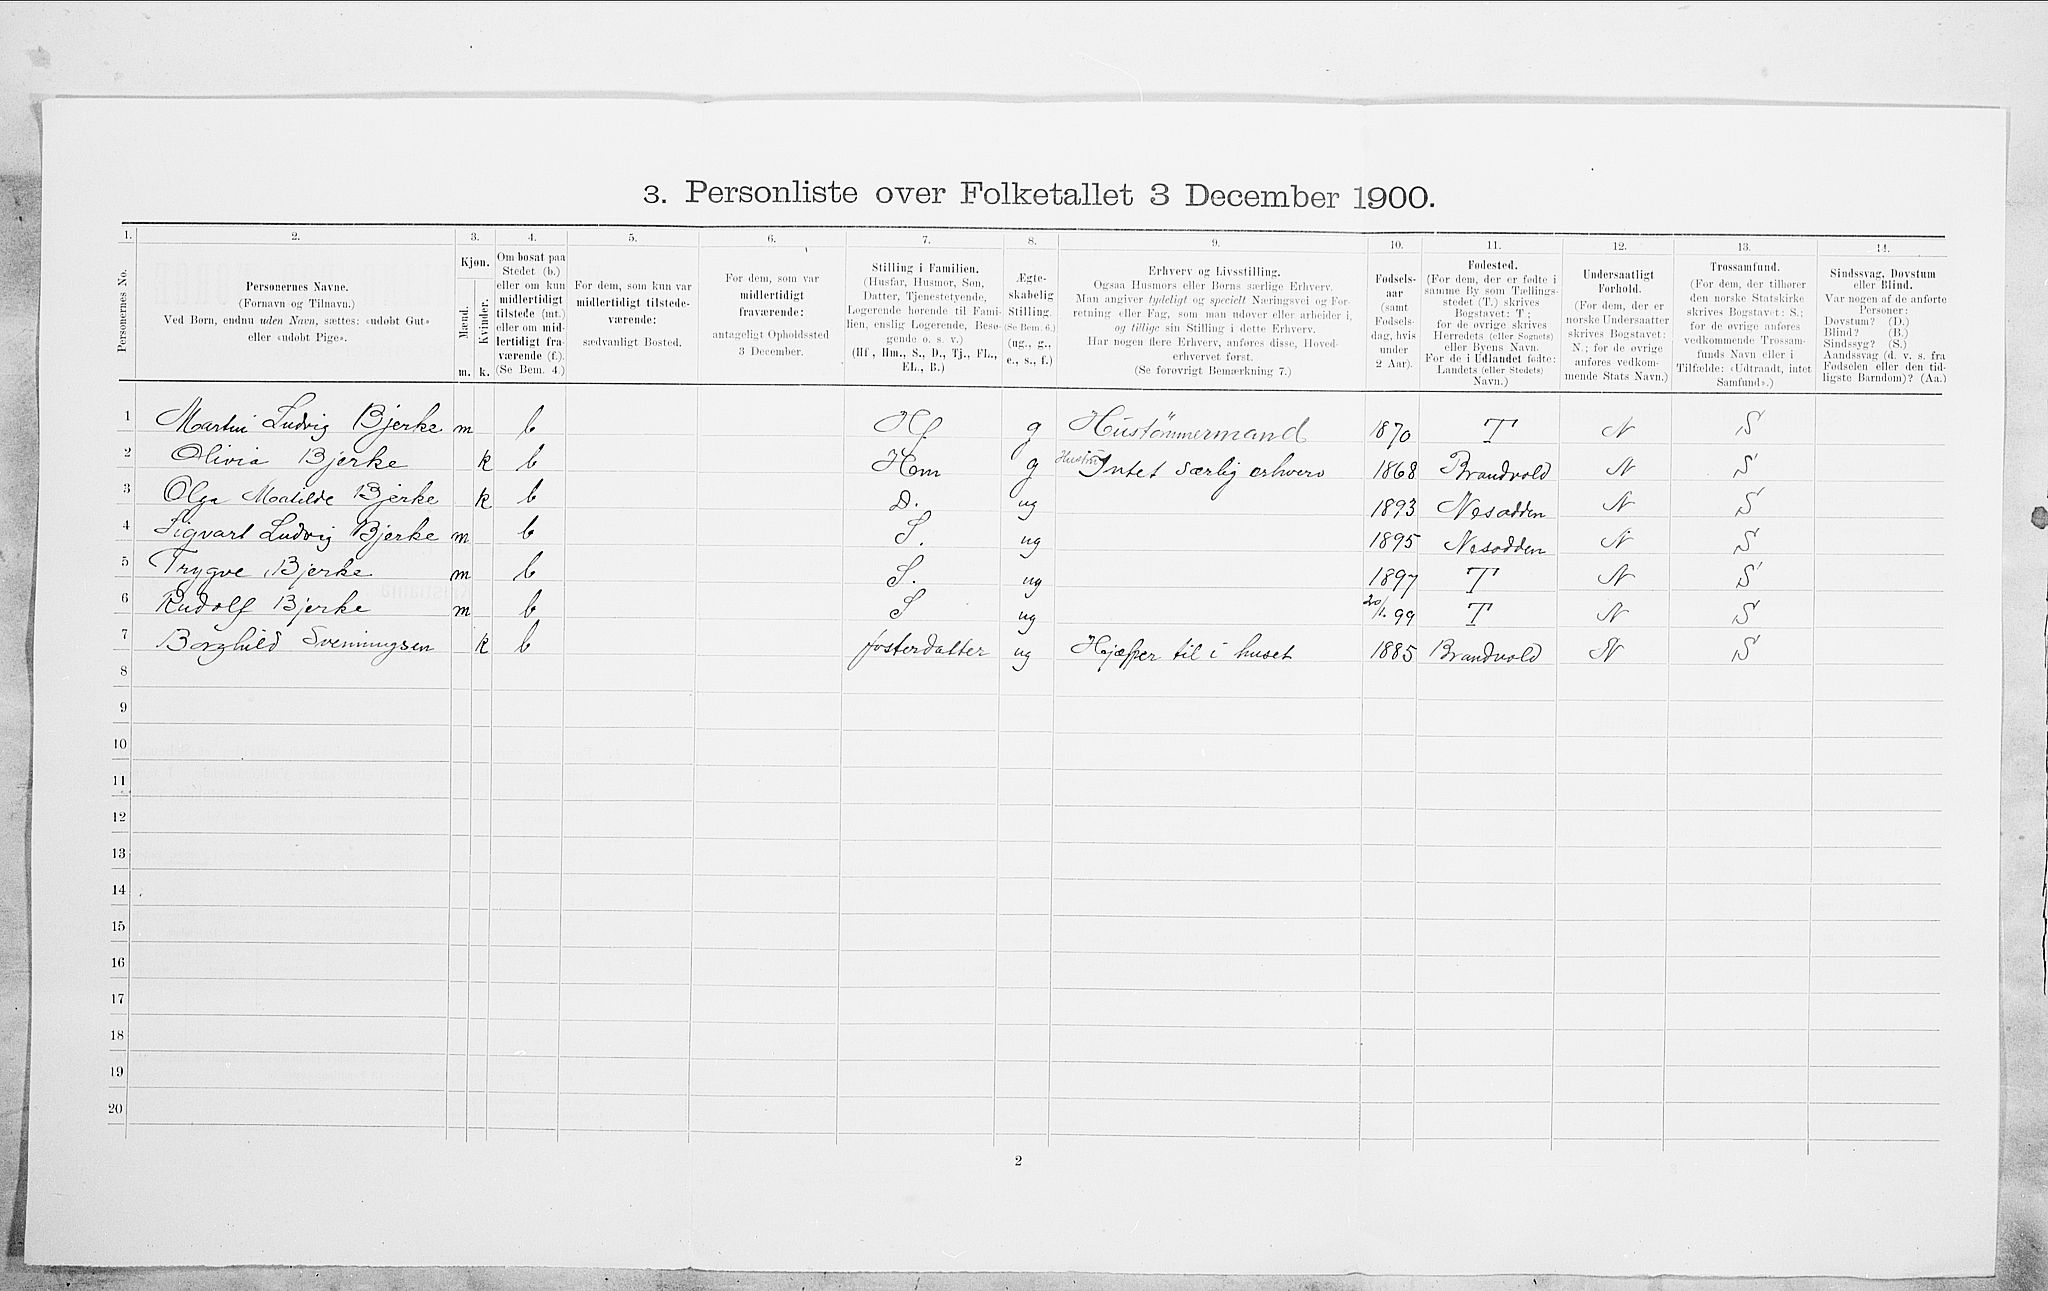 3. Personliste over Folketallet 3 December 1900.
1. 2. 3. 4. 5. 6. 7. 8. 9. 10. 11. 12. 13. 14.
Personernes No.
Personernes Navne.
(Fornavn og Tilnavn.)
Ved Børn, endnu uden Navn, sættes: «udøbt Gut»
eller «udøbt Pige».
Kjøn.
Mænd.
Kvinder.
m. k.
Om bosat paa
Stedet (b.)
eller om kun
midlertidigt
tilstede (mt.)
eller om mid-
lertidigt fra-
værende (f.).
(Se Bem. 4.)
For dem, som kun var
midlertidigt tilstede-
værende:
sædvanligt Bosted.
For dem, som var
midlertidigt
fraværende:
antageligt Opholdssted
3 December.
Stilling i Familien.
(Husfar, Husmor, Søn,
Datter, Tjenestetyende,
Logerende hørende til Fami-
lien, enslig Logerende, Besø-
gende o. s. v.)
(Hf., Hm., S., D., Tj., FL.,
EL., B.)
Ægte-
skabelig
Stilling.
(Se Bem. 6.)
(ug., g.,
e., s., f.)
Erhverv og Livsstilling.
Ogsaa Husmors eller Børns særlige Erhverv.
Man angiver tydeligt og specielt Næringsvei og For-
retning eller Fag, som man udøver eller arbeider i,
og tillige sin Stilling i dette Erhverv.
Har nogen flere Erhverv, anføres disse, Hoved-
erhvervet først.
(Se forøvrigt Bemærkning 7.)
Fødsels-
aar
(samt
Fødsels-
dag, hvis
under
2 Aar).
Fødested.
(For dem, der er fødte i
samme By som Tællings-
stedet (T.) skrives
Bogstavet: T;
for de øvrige skrives
Herredets (eller Sognets)
eller Byens Navn.
For de i Udlandet fødte:
Landets (eller Stedets)
Navn.)
Undersaatligt
Forhold.
(For dem, der er
norske Undersaatter
skrives Bogstavet:
N.; for de øvrige
anføres vedkom-
mende Stats Navn.)
Trossamfund.
(For dem, der tilhører
den norske Statskirke
skrives Bogstavet: S.;
for de øvrige anføres
vedkommende Trossam-
funds Navn eller i
Tilfælde: «Udtraadt, intet
Samfund».)
Sindssvag, Døvstum
eller Blind.
Var nogen af de anførte
Personer:
Døvstum? (D.)
Blind? (B.)
Sindssyg? (S.)
Aandssvag (d. v. s. fra
Fødselen eller den tid-
ligste Barndom)? (Aa.)
1 Martin Ludvig Bjerke m b Hf g Hustømmermand 1870 T N S
2 Olivia Bjerke k b Hm g Hustru Intet særlig erhverv 1868 Brandvold N S
3 Olga Matilde Bjerke k b D. ug 1893 Nesodden N S
4 Sigvart Ludvig Bjerke m b S. ug 1895 Nesodden N S
5 Trygve Bjerke m b S. ug 1897 T N S
6 Rudolf Bjerke m b S ug 20/1. 99 T N S
7 Borghild Svenningsen k b fosterdatter ug Hjælper til i huset 1885 Brandvold N S
8
9
10
11
12
13
14
15
16
17
18
19
20
2